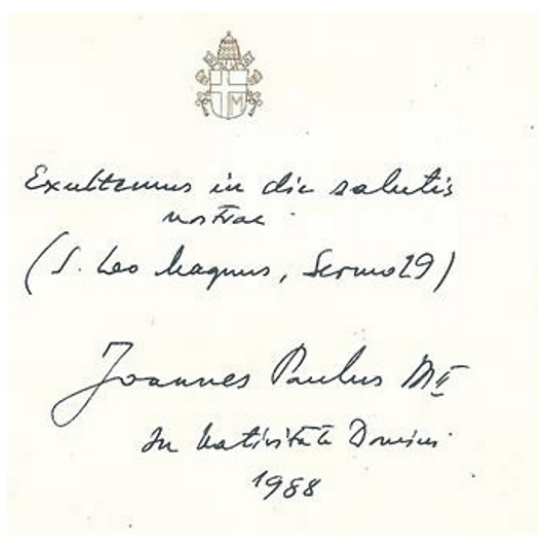 M
Exultemus in die salutis
nostrae
(S. Leo Magnus, Sermo 29)
Joannes Paulus PP II
In Nativitate Domini
1988